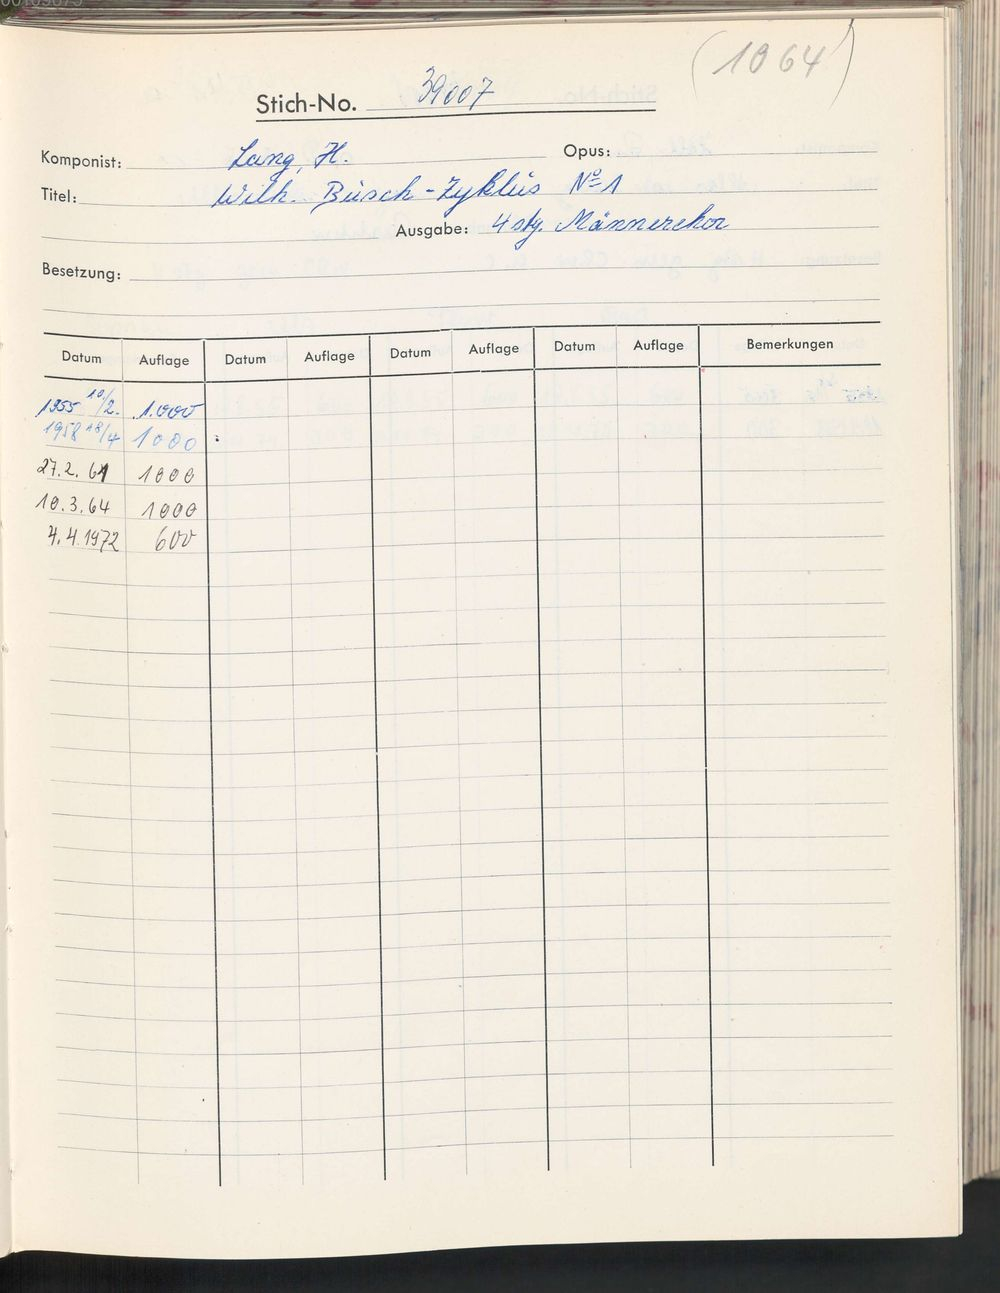 (1064)
Stich-No. 39007
Komponist: Lang, H. Opus:
Titel: Wilh. Busch-Zyklus No 1
Ausgabe: 4 stg. Männerchor
Besetzung:
Datum Auflage Datum Auflage Datum Auflage Datum Auflage Bemerkungen
1955 10/2. 1.000
1958 18/4 1000
27.2.61 1000
10.3.64 1000
4.4.1972 600